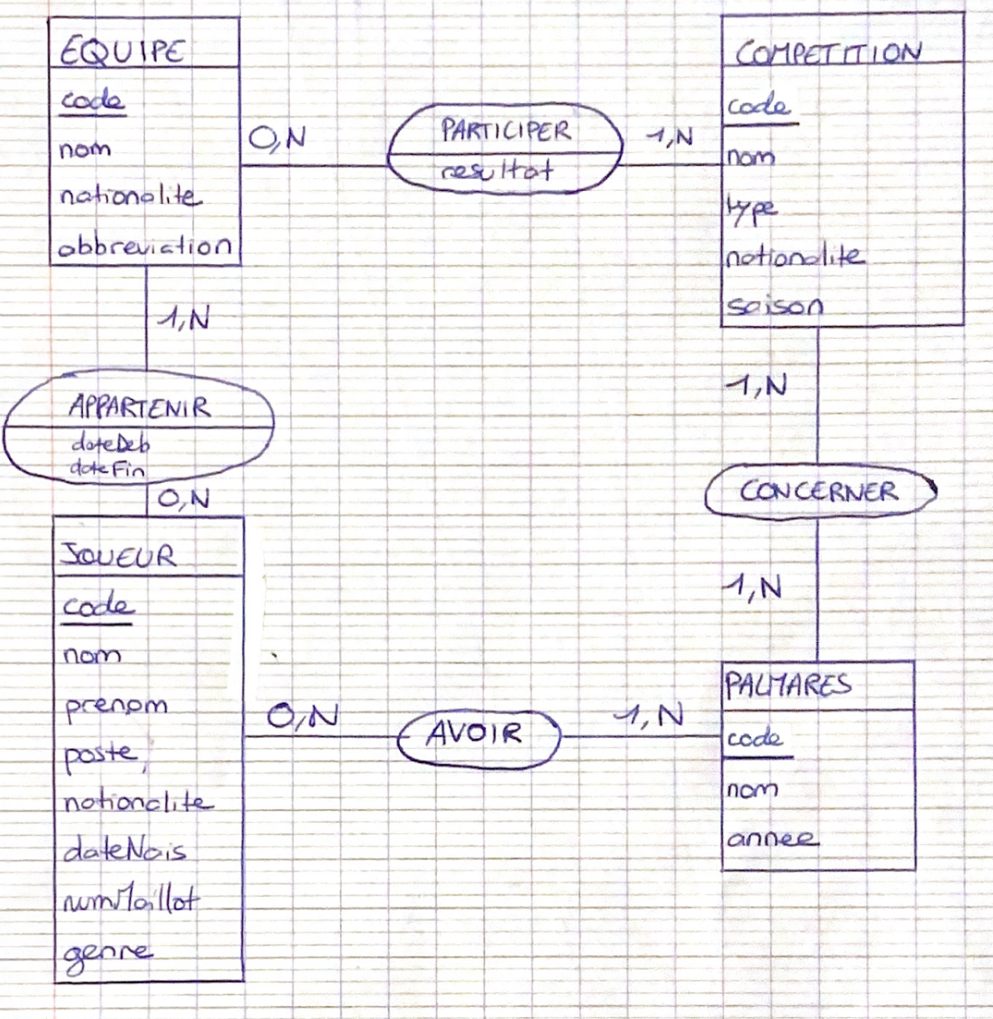 EQUIPE
code
nom
nationalite
abbreviation
0,N
PARTICIPER
resultat
1,N
COMPETITION
code
nom
type
nationalite
saison
1,N
APPARTENIR
dateDeb
dateFin
0,N
1,N
CONCERNER
1,N
JOUEUR
code
nom
prenom
poste
nationalite
dateNais
numMaillot
genre
0,N
AVOIR
1,N
PALMARES
code
nom
annee